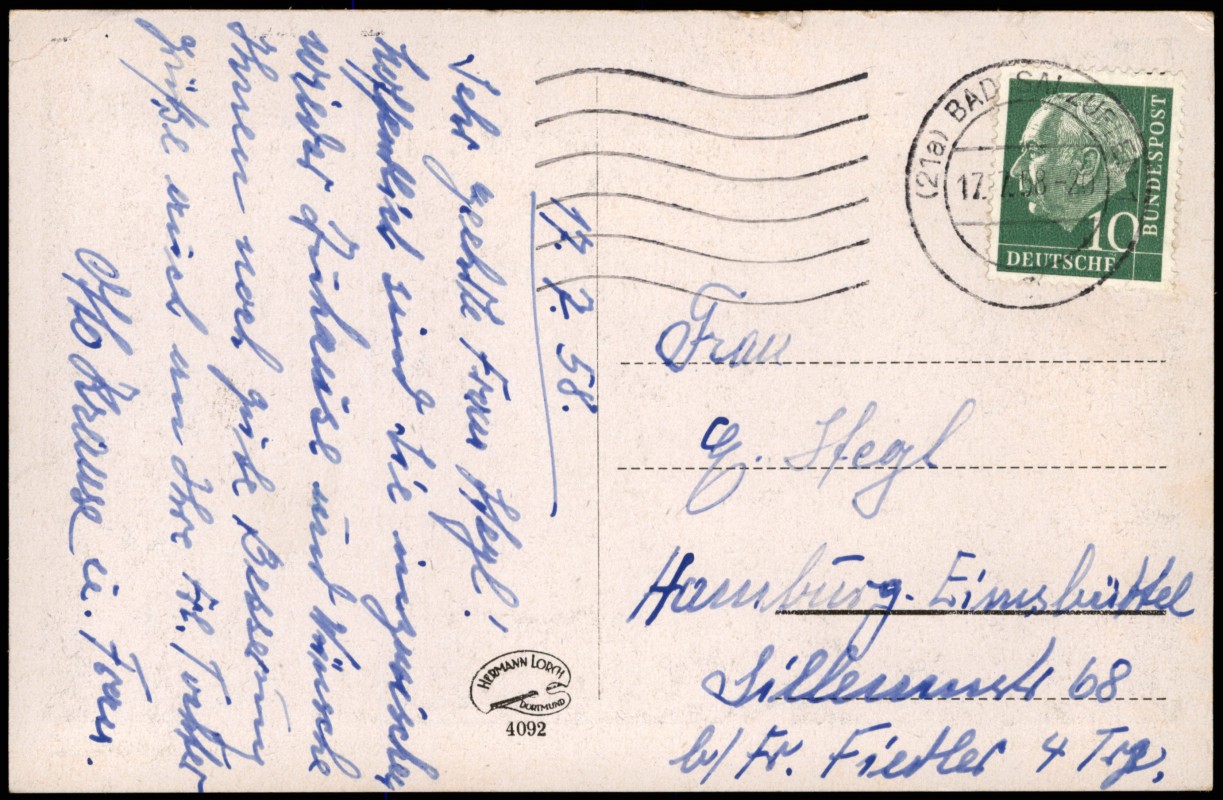 17. 7. 58.
Sehr geehrte Frau Hegl!,
hoffentlich sind Sie inzwischen
wieder zuhause und wünsche
Ihnen noch gute Besserung
grüße auch an Ihre Frl. Tochter
Otto Krause u. Frau.
HERMANN LORCH
DORTMUND
4092
(21a) BAD SALZUFLEN
17.7.58
10
DEUTSCHE
BUNDESPOST
Frau
E. Hegl
Hamburg-Eimsbüttel
Sillemstr 68
b/ Fr. Fiedler 4 Trp.